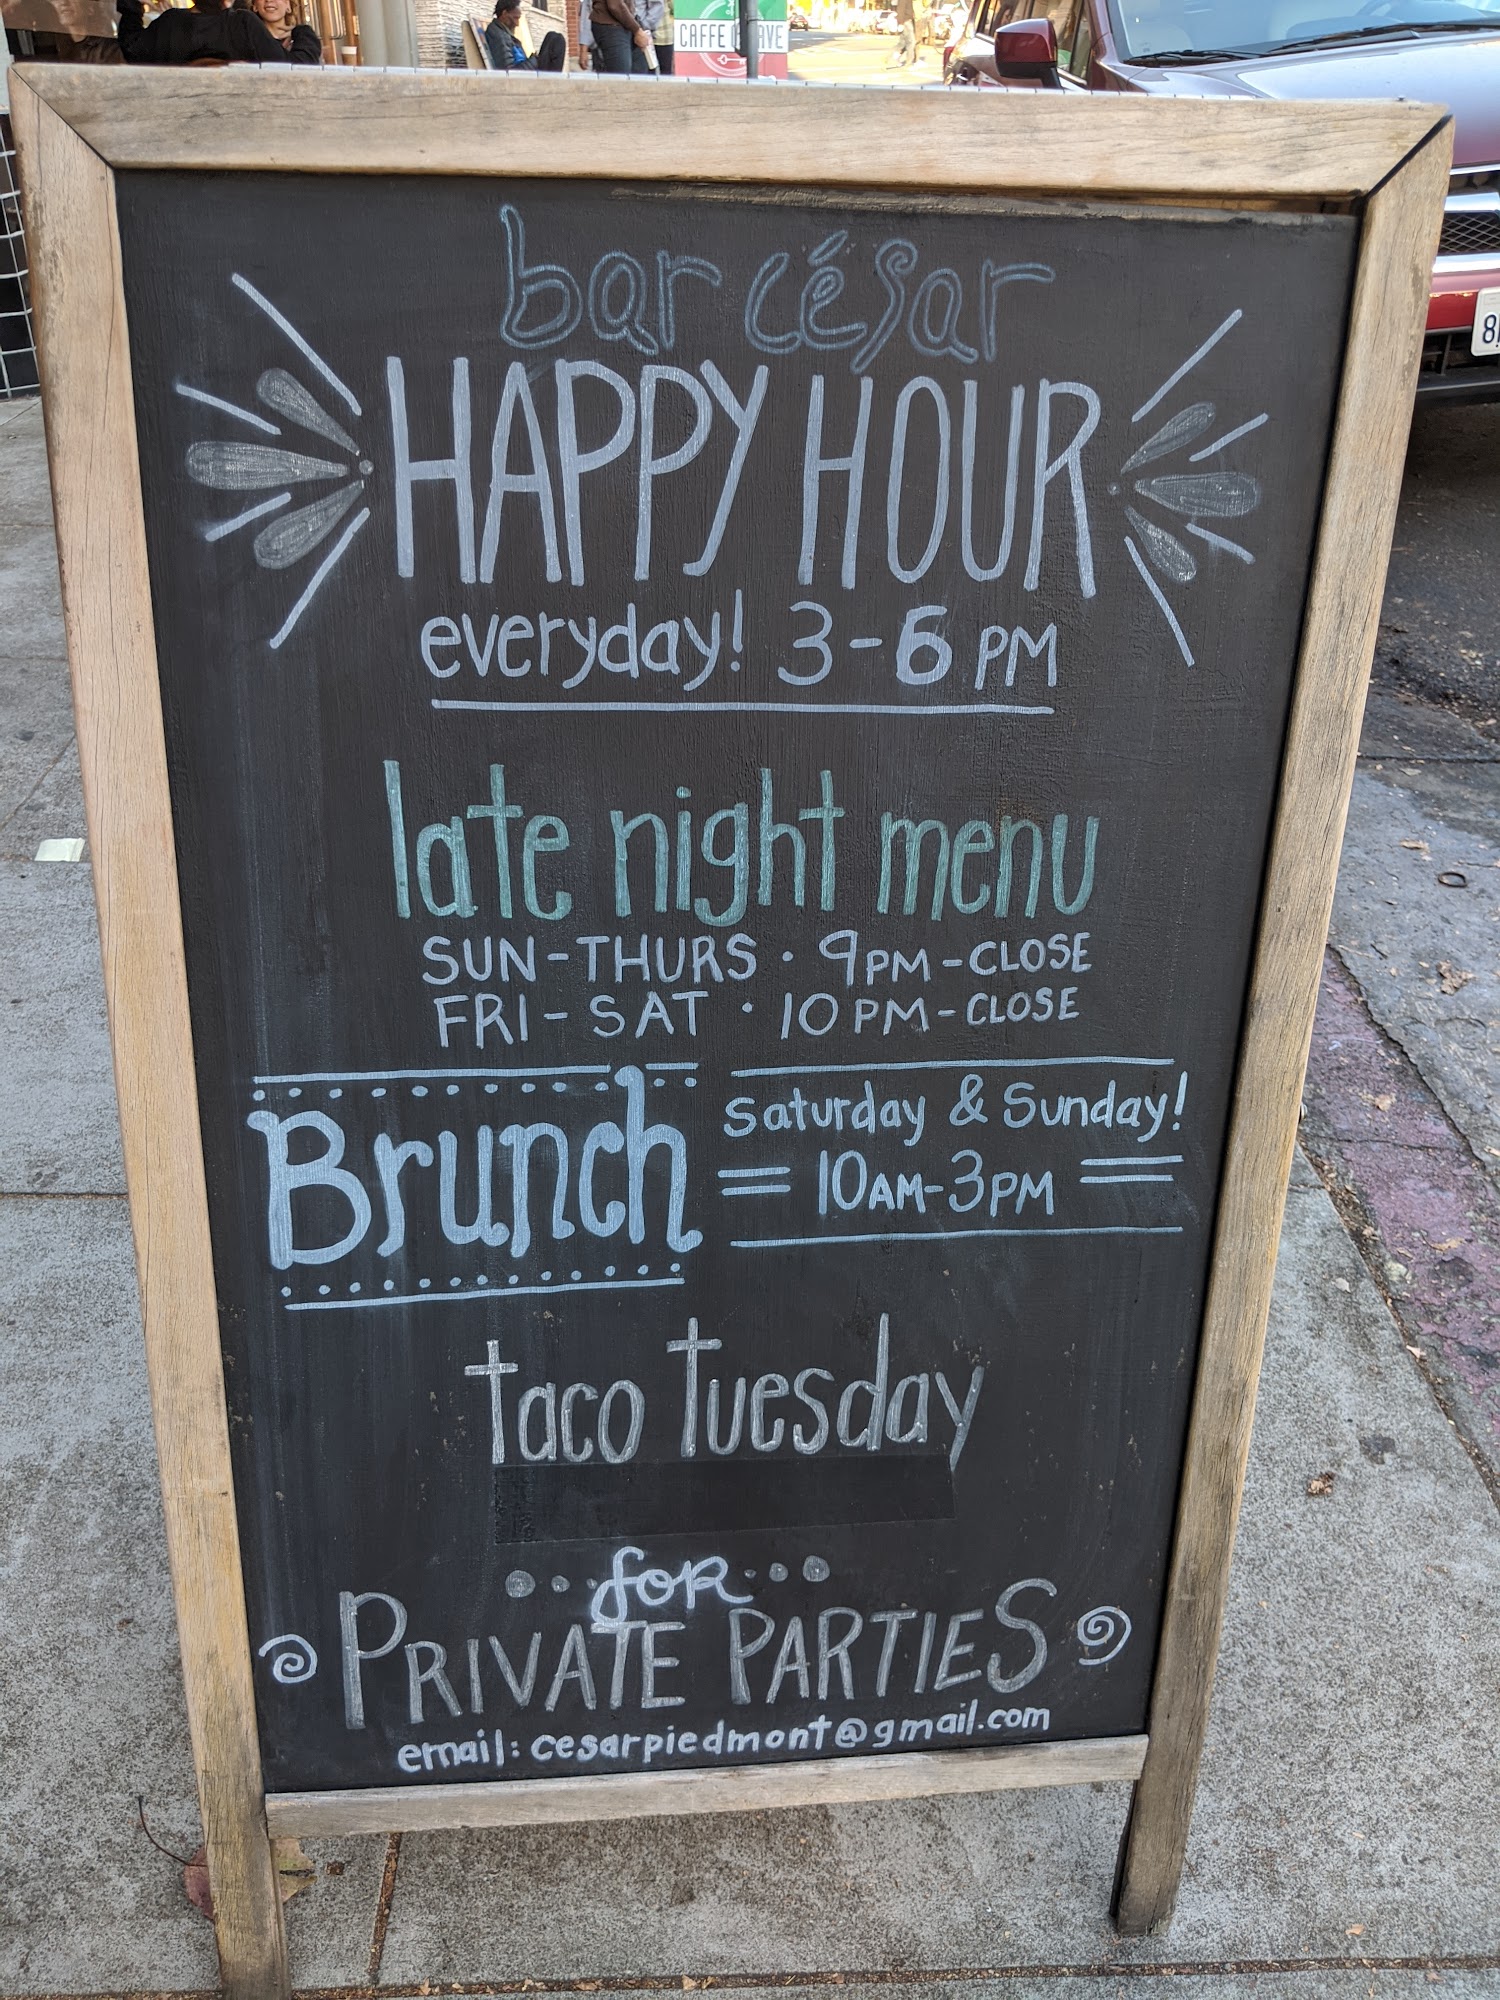 bar césar
HAPPY HOUR
everyday! 3-6 PM
late night menu
SUN-THURS · 9PM-CLOSE
FRI-SAT · 10PM-CLOSE
Brunch
Saturday & Sunday!
10AM-3PM
taco Tuesday
for
PRIVATE PARTIES
email: cesarpiedmont@gmail.com
CAFFE